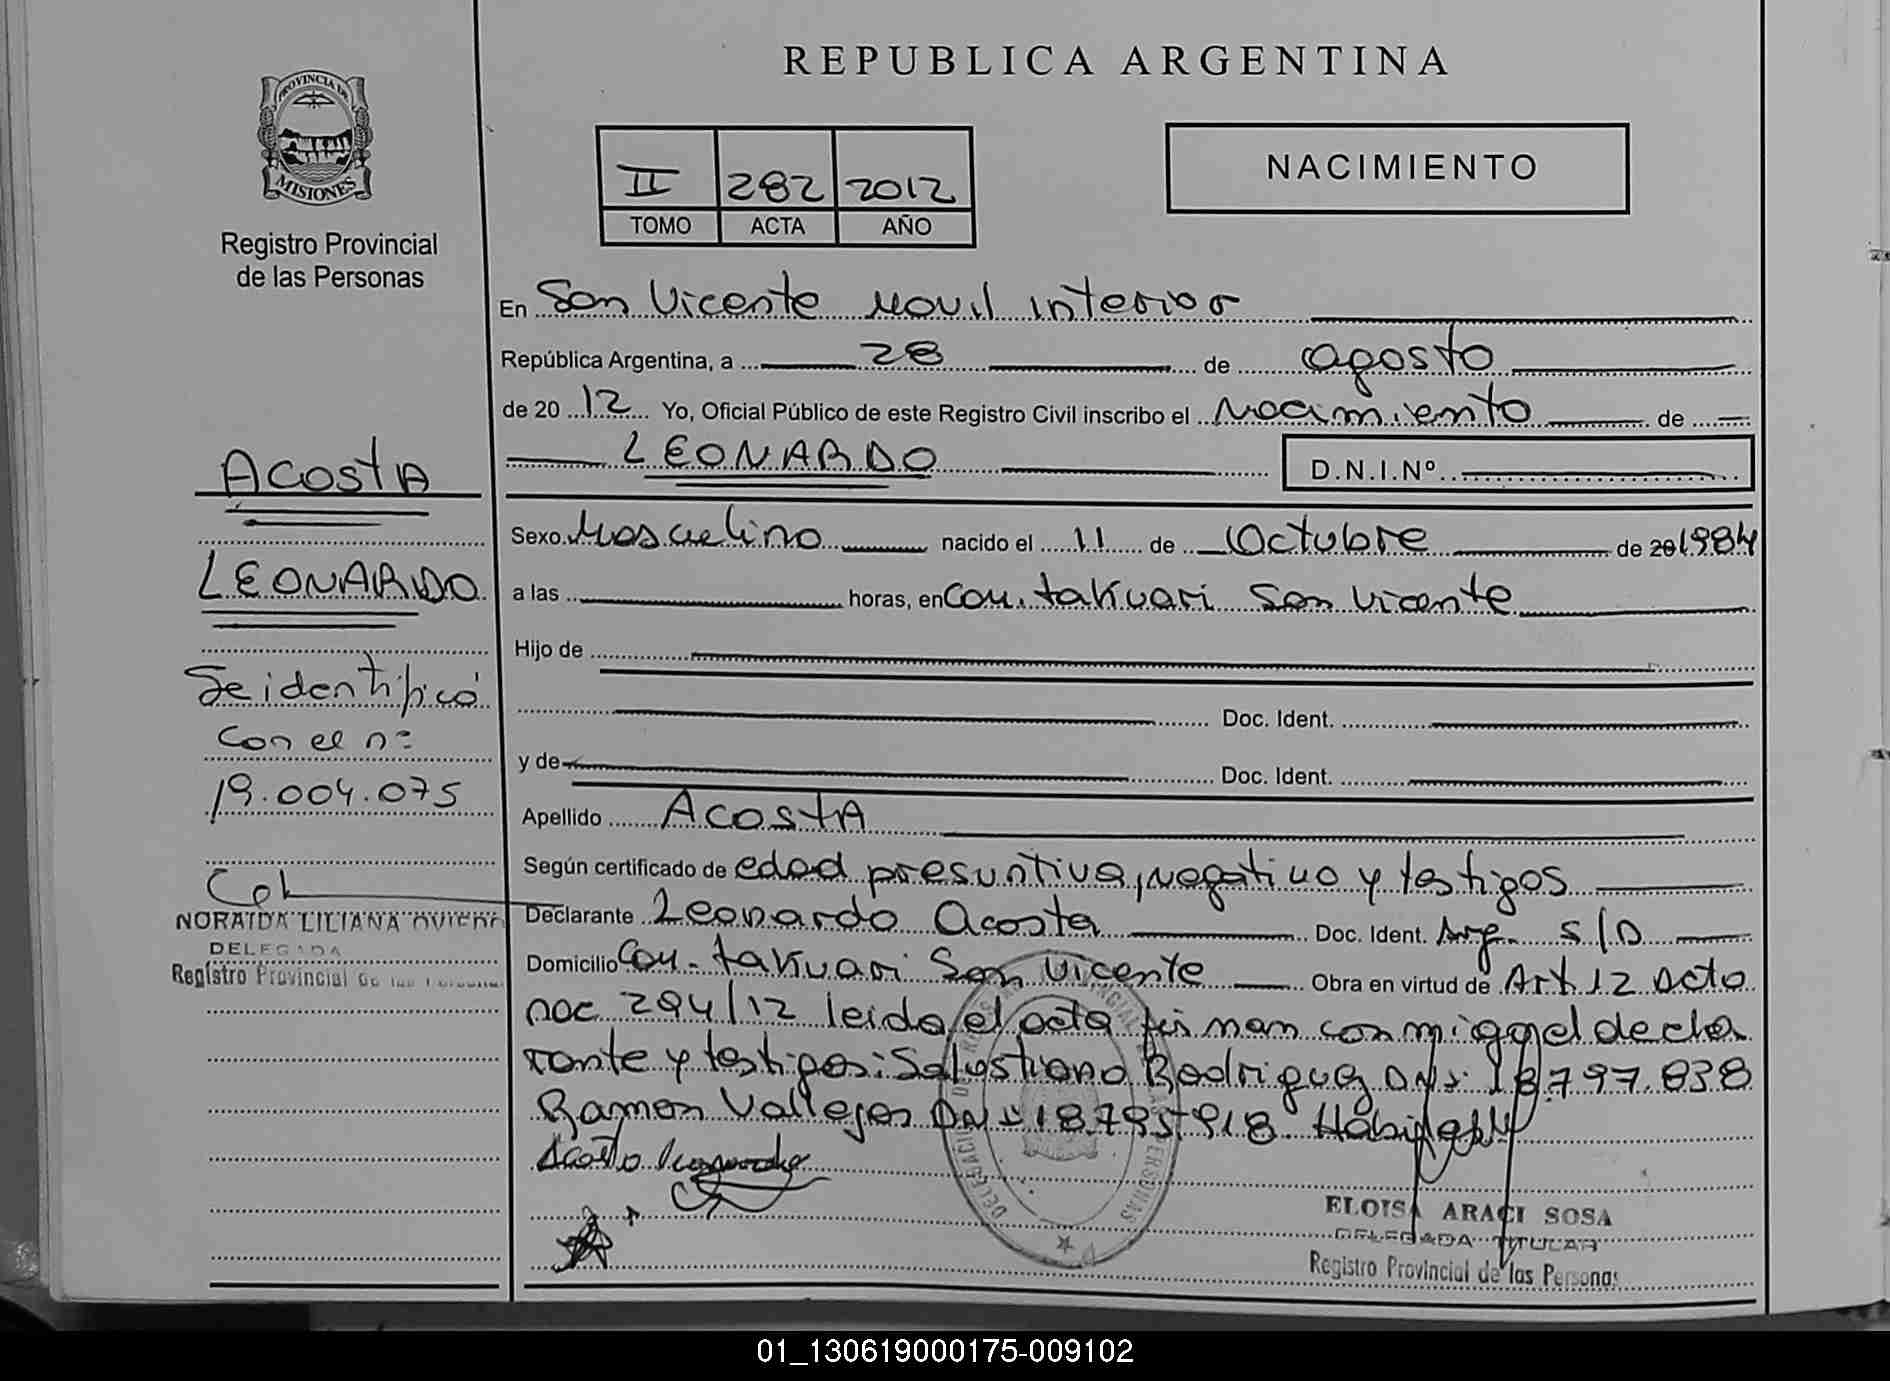 REPUBLICA ARGENTINA
PROVINCIA DE
MISIONES
Registro Provincial
de las Personas
II 282 2012
TOMO ACTA AÑO
NACIMIENTO
En San Vicente Movil interior
República Argentina, a 28 de agosto
de 2012 Yo, Oficial Público de este Registro Civil inscribo el Nacimiento de
LEONARDO D.N.I.Nº
ACOSTA
LEONARDO
Se identificó
con el nº
19.004.075
NORAIDA LILIANA
DELEGADA
Registro Provincial de las Personas
Sexo Masculino nacido el 11 de Octubre de 20 1984
a las horas, en Col. takuari San Vicente
Hijo de
Doc. Ident.
y de Doc. Ident.
Apellido ACOSTA
Según certificado de edad presuntiva, negativo y testigos
Declarante Leonardo Acosta Doc. Ident. Arg. S/D
Domicilio Col. takuari San Vicente Obra en virtud de Art 12 acto
nac 294/12 leida el acta firman conmigo el decla
rante y testigos: Salustiano Rodriguez DNI: 18.797.838
Ramon Vallejos DNI 18.795.918
Acosta Leonardo
ELOISA ARACI SOSA
DELEGADA TITULAR
Registro Provincial de las Personas
01_130619000175-009102